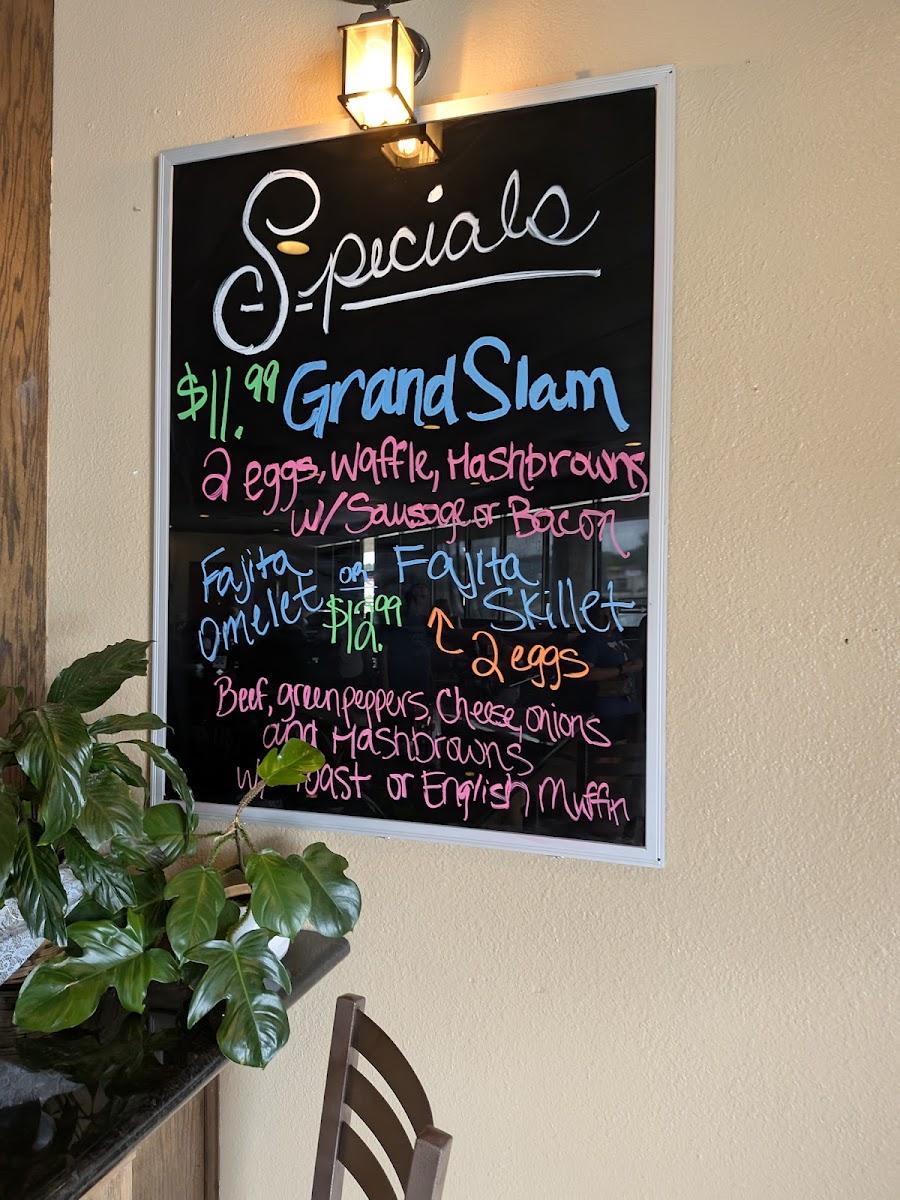 Specials
$11.99 Grand Slam
2 eggs, Waffle, Hashbrowns
w/ Sausage or Bacon
Fajita Omelet or Fajita Skillet
$12.99 2 eggs
Beef, green peppers, Cheese, onions
and Hashbrowns
w/ Toast or English Muffin